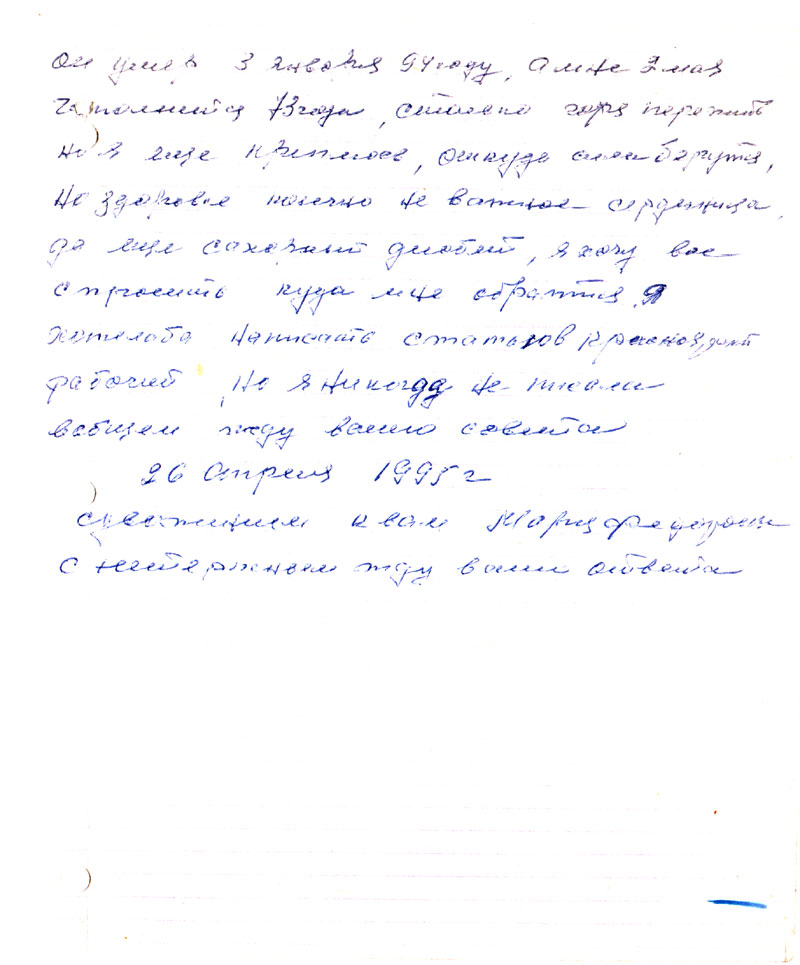 Он умер 3 января 94 году, а мне 2 мая
исполнится 73 года, столько горя пережить
но я еще креплюсь, откуда силы берутся,
но здоровье конечно не важное сердечница,
да еще сахарный диабет, я хочу вас
спросить куда мне обратится, Я
хотела ба написать статью в Красное,
рабочий но я никогда не писала
вобщем жду вашию совета
26 Апреля 1995 г
суважением к вам Мария Федоровна
с нетерпением жду ваши ответа